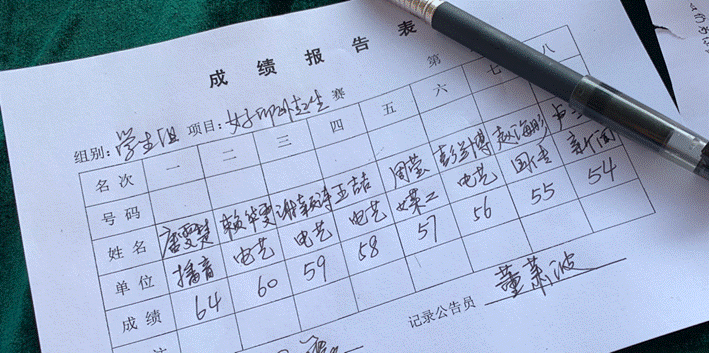 成绩报告表
第
组别: 学生组 项目: 女子 赛
名次 一 二 三 四 五 六 七 八
号码
姓名 唐雯楚 赖华雯 王喆 周莹 彭 博 赵海彤
单位 播音 电艺 电艺 电艺 媒工 电艺 国传 新闻
成绩 64 60 59 58 57 56 55 54
记录公告员 董萧波